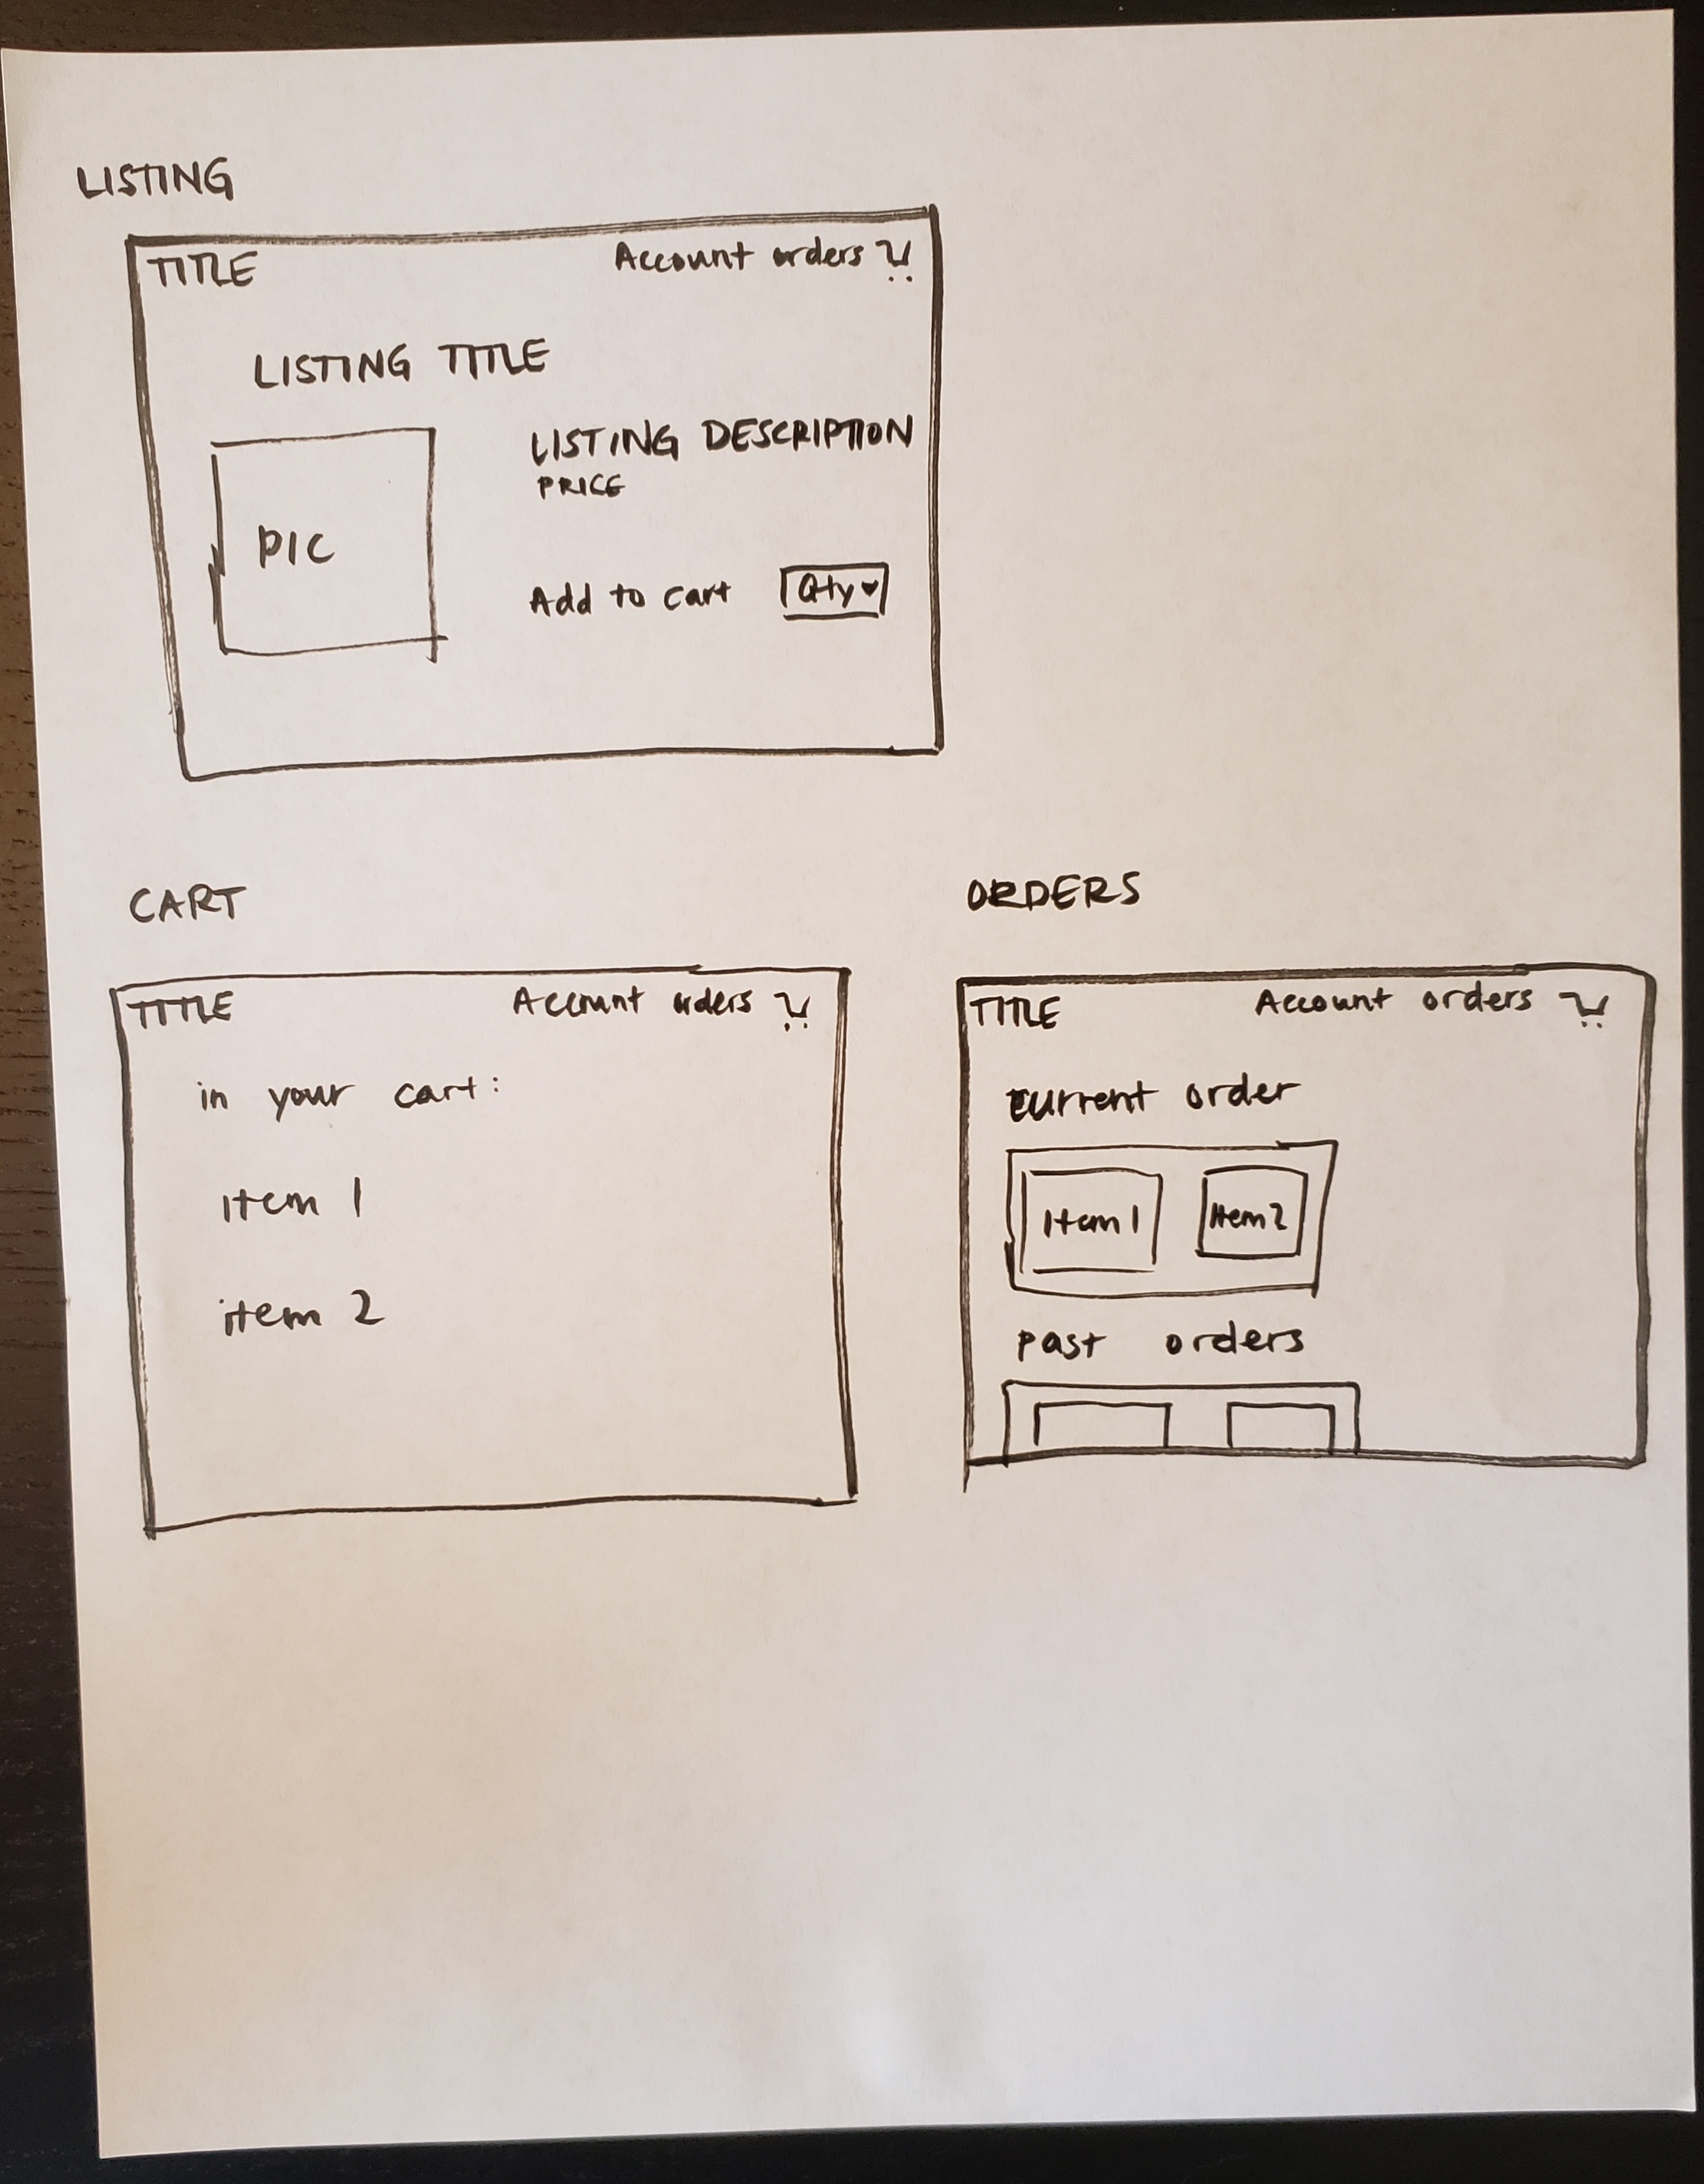 LISTING
TITLE Account orders
LISTING TITLE
LISTING DESCRIPTION
PRICE
PIC
Add to cart Qty
CART
TITLE Account orders
in your cart:
item 1
item 2
ORDERS
TITLE Account orders
current order
item 1 item 2
past orders